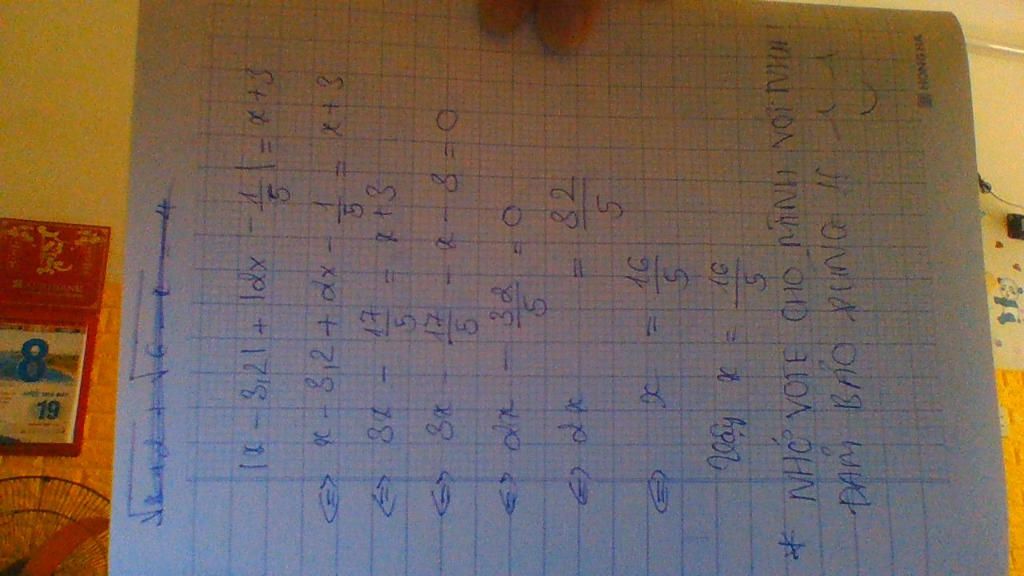 |x - 3,2| + |2x - 1/5| = x + 3
⇔ x - 3,2 + 2x - 1/5 = x + 3
⇔ 3x - 17/5 = x + 3
⇔ 3x - 17/5 - x - 3 = 0
⇔ 2x - 32/5 = 0
⇔ 2x = 32/5
⇔ x = 16/5
Vậy x = 16/5
* NHỚ VOTE CHO MÌNH VỚI NHA
ĐẢM BẢO ĐÚNG Ạ
HONG HA
8
19